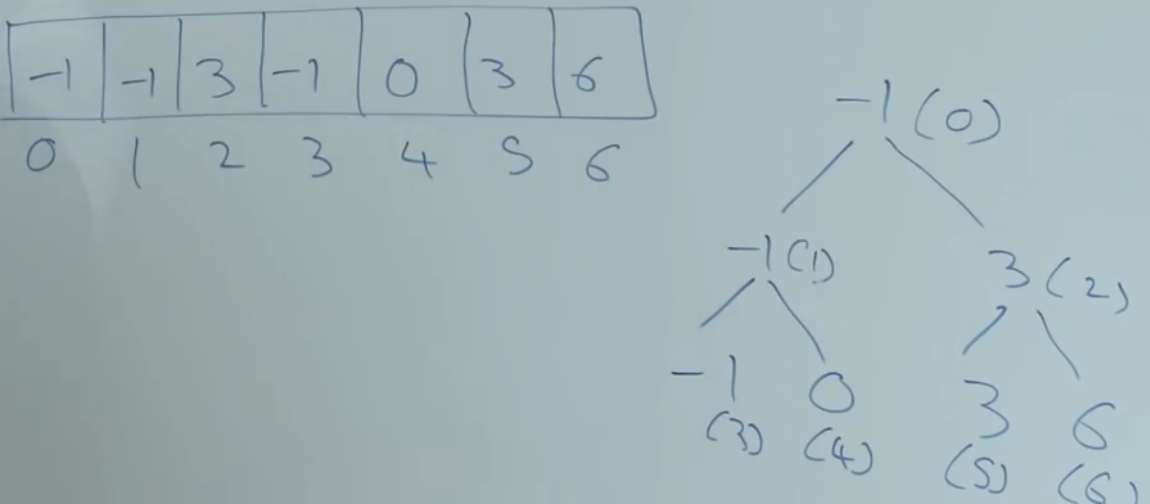 -1 -1 3 -1 0 3 6
0 1 2 3 4 5 6
-1 (0)
-1 (1) 3 (2)
-1 0 3 6
(3) (4) (5) (6)